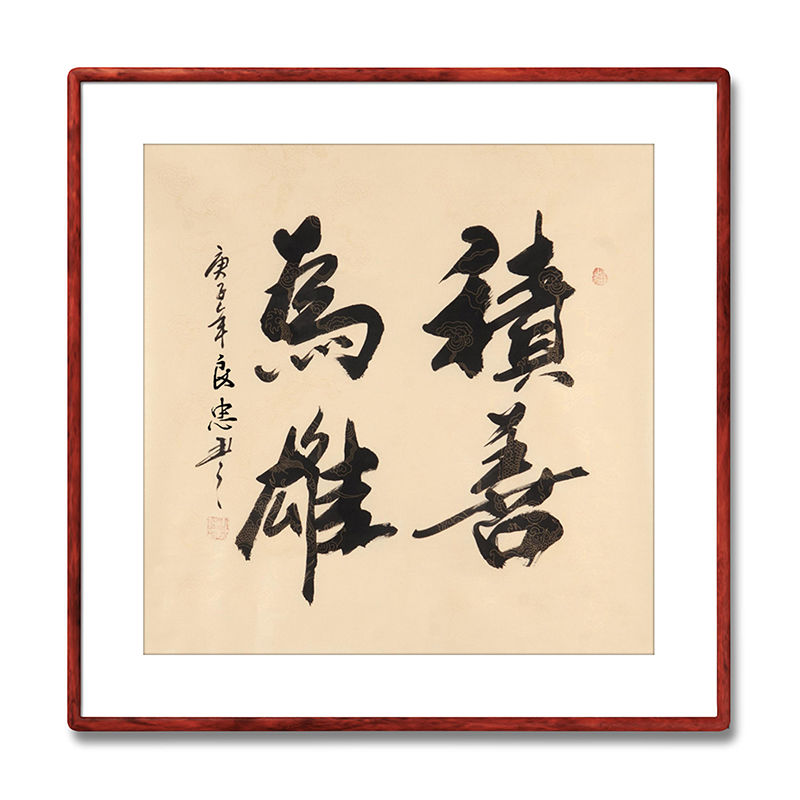 積善
為雄
庚年良忠書